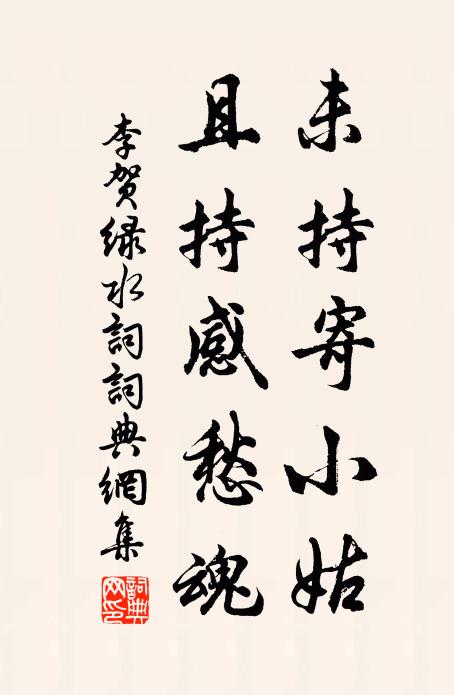 未持寄小姑
且持感愁魂
李贺绿水詞詞典網集
詞典網印